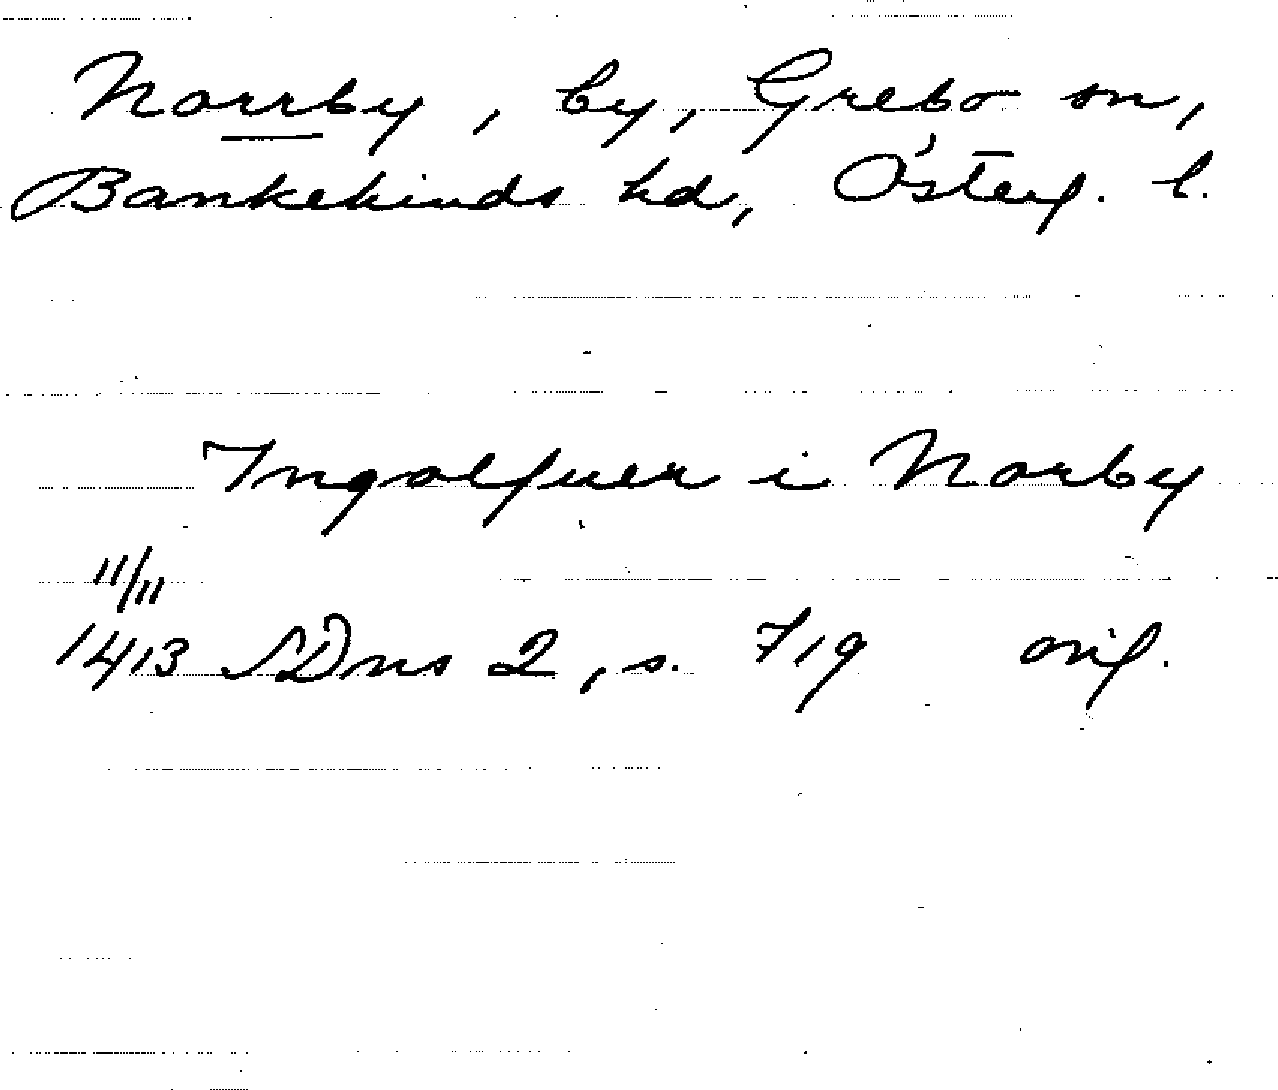 Norrby, by, Grebo sn,
Bankekinds hd, Österg. l.
Ingolfuer i Norby
11/11
1413 SDns 2, s. 719 orig.